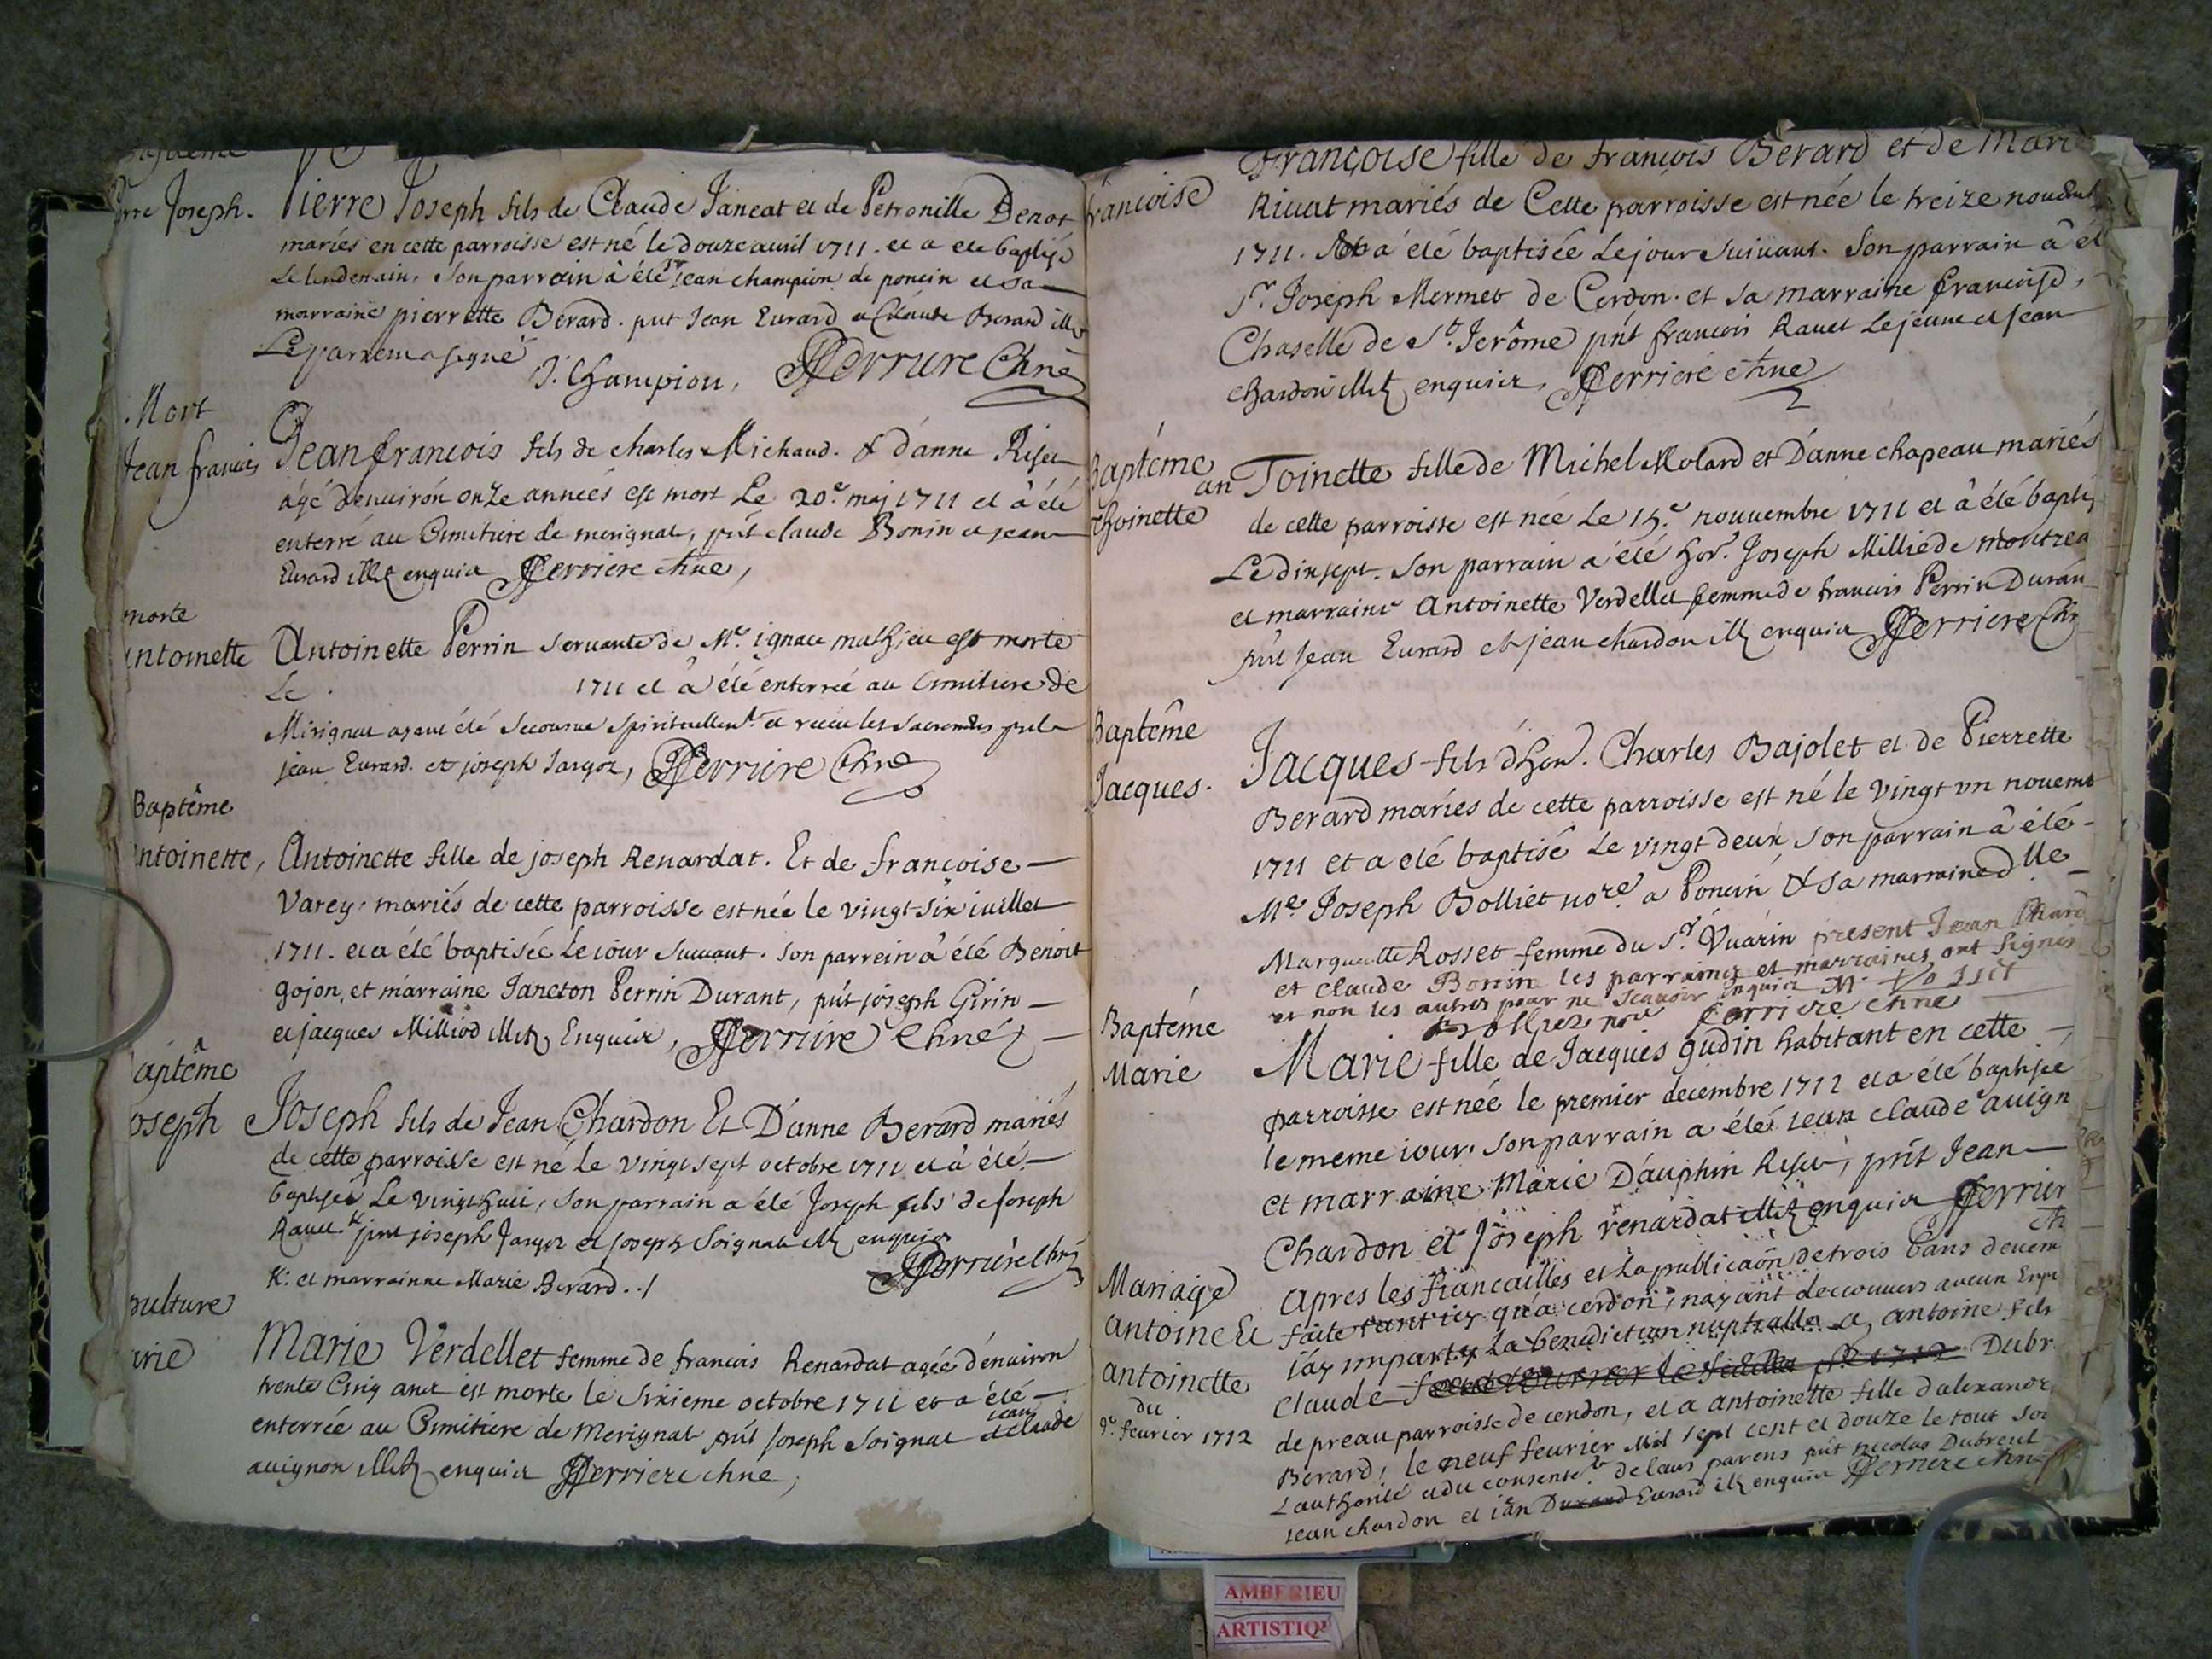 Baptême
Pierre Joseph.
Pierre Joseph fils de Claude Jancat et de Petronille Benot
mariés en cette parroisse est né le douze avril 1711. et a été baptisé
Le lendemain, son parrain à été Sr Jean champion de poncin et sa
marraine pierrette Berard. pnt Jean Evrard et Claude Berard illt
Le parrein a signé
J. Champion, Ferriere Chne
Mort
Jean francois
Jean francois fils de charles Michaud. & d'anne
âgé denviron onze années est mort Le 20e. maj 1711 et â été
enterré au Cimitiere de merignat, pnt claude Bonin et jean
Evrard illt enquis Ferriere chne,
morte
Antoinette
Antoinette Perrin servante de Me. ignace mathieu est morte
Le . 1711 et à été enterrée au Cimitiere de
Mirignat ayant été secourue spirituellemt. et receu les sacremens pnt
jean Evrard. et joseph Jargot, Ferriere Chne
Baptême
Antoinette,
Antoinette fille de joseph Renardat. Et de françoise
Varey. mariés de cette parroisse est née le vingt six iuillet
1711. et a été baptisée Le iour suivant. son parrein â été Benoit
gojon, et marraine Janeton Perrin Durant, pnt joseph Girin
et jacques Milliod illt Enquis, Ferriere Chne
aptême
oseph
Joseph fils de Jean Chardon Et D'anne Berard mariés
de cette parroisse est né Le vingt sept octobre 1711 et â été
baptisé Le vingt huit, son parrain a été Joseph fils de Joseph
Ravet pnt joseph Jargot et Joseph Soignat illt enquis
K: et marrainne Marie Berard ./ Ferriere chne
pulture
arie
Marie Verdellet femme de francois Renardat agée d'environ
trente Cinq ans est morte le sixieme octobre 1711 et a été
enterrée au Cimitiere de Merignat pnt Joseph Soignat et jean claude
avignon illt enquis Ferriere chne,
francoise
Françoise fille de francois Berard et de Marie
Rivat mariés de Cette parroisse est née le treize novemb
1711. Et a été baptisée Le jour suivant. Son parrain â ét
Sr. Joseph Mermet de Cerdon. et sa marraine francoise,
Chaselle de St. Jerôme pnt francois Ravet Le jeune et Jean
chardon illt enquis, Ferriere chne
Baptéme
thoinette
an Toinette fille de Michel Molard et D'anne chapeau mariés
de cette parroisse est née Le 15.e nouvembre 1711 et â été baptis
Le dix sept. son parrain a été hon. Joseph Millié de montrea
et marraine Antoinette Verdellet femme de francois Perrin Duran
pnt Jean Evrard et jean chardon illt enquis Ferriere Chn
Baptême
Jacques.
Jacques fils d'hon. Charles Bajolet et de Pierrette
Berard mariés de cette parroisse est né le vingt vn novemb
1711 et a été baptisé Le vingt deux son parrain â été
Me. Joseph Bolliet nore a Poncin & sa marraine dlle
Marguerite Rosset femme du Sr. Vuarin present Jean Chard
et claude Bonin les parraines et marraines ont signés
et non les autres pour ne scavoir enquis M. Rosset
Bolliet nore Ferriere chne
Baptéme
Marie
Marie fille de Jacques gudin habitant en cette
parroisse est née le premier decembre 1712 et a été baptisée
le meme iour. son parrain a été iean claude avign
et marraine Marie Dauphin, pnt Jean
Chardon et Joseph renardat illt enquis Ferrier
ch
Mariage
antoine Et
antoinette
du
9e. fevrier 1712
Apres les fiancailles et La publicaon de trois bans devem
faite tant icy qu'a cerdon, nayant deccouvers aucun Empe
iay imparty La benediction nuptialle a antoine fils
claude Dubr
de preau parroisse de cerdon, et a antoinette fille d'alexandr
Berard, le neuf fevrier Mil sept cent et douze le tout so
L'authorité et du consentet. de leurs parens pnt nicolas Dubreul
iean chardon et iean Durand Evrard illt enquis Ferriere chne
AMBERIEU
ARTISTIQU